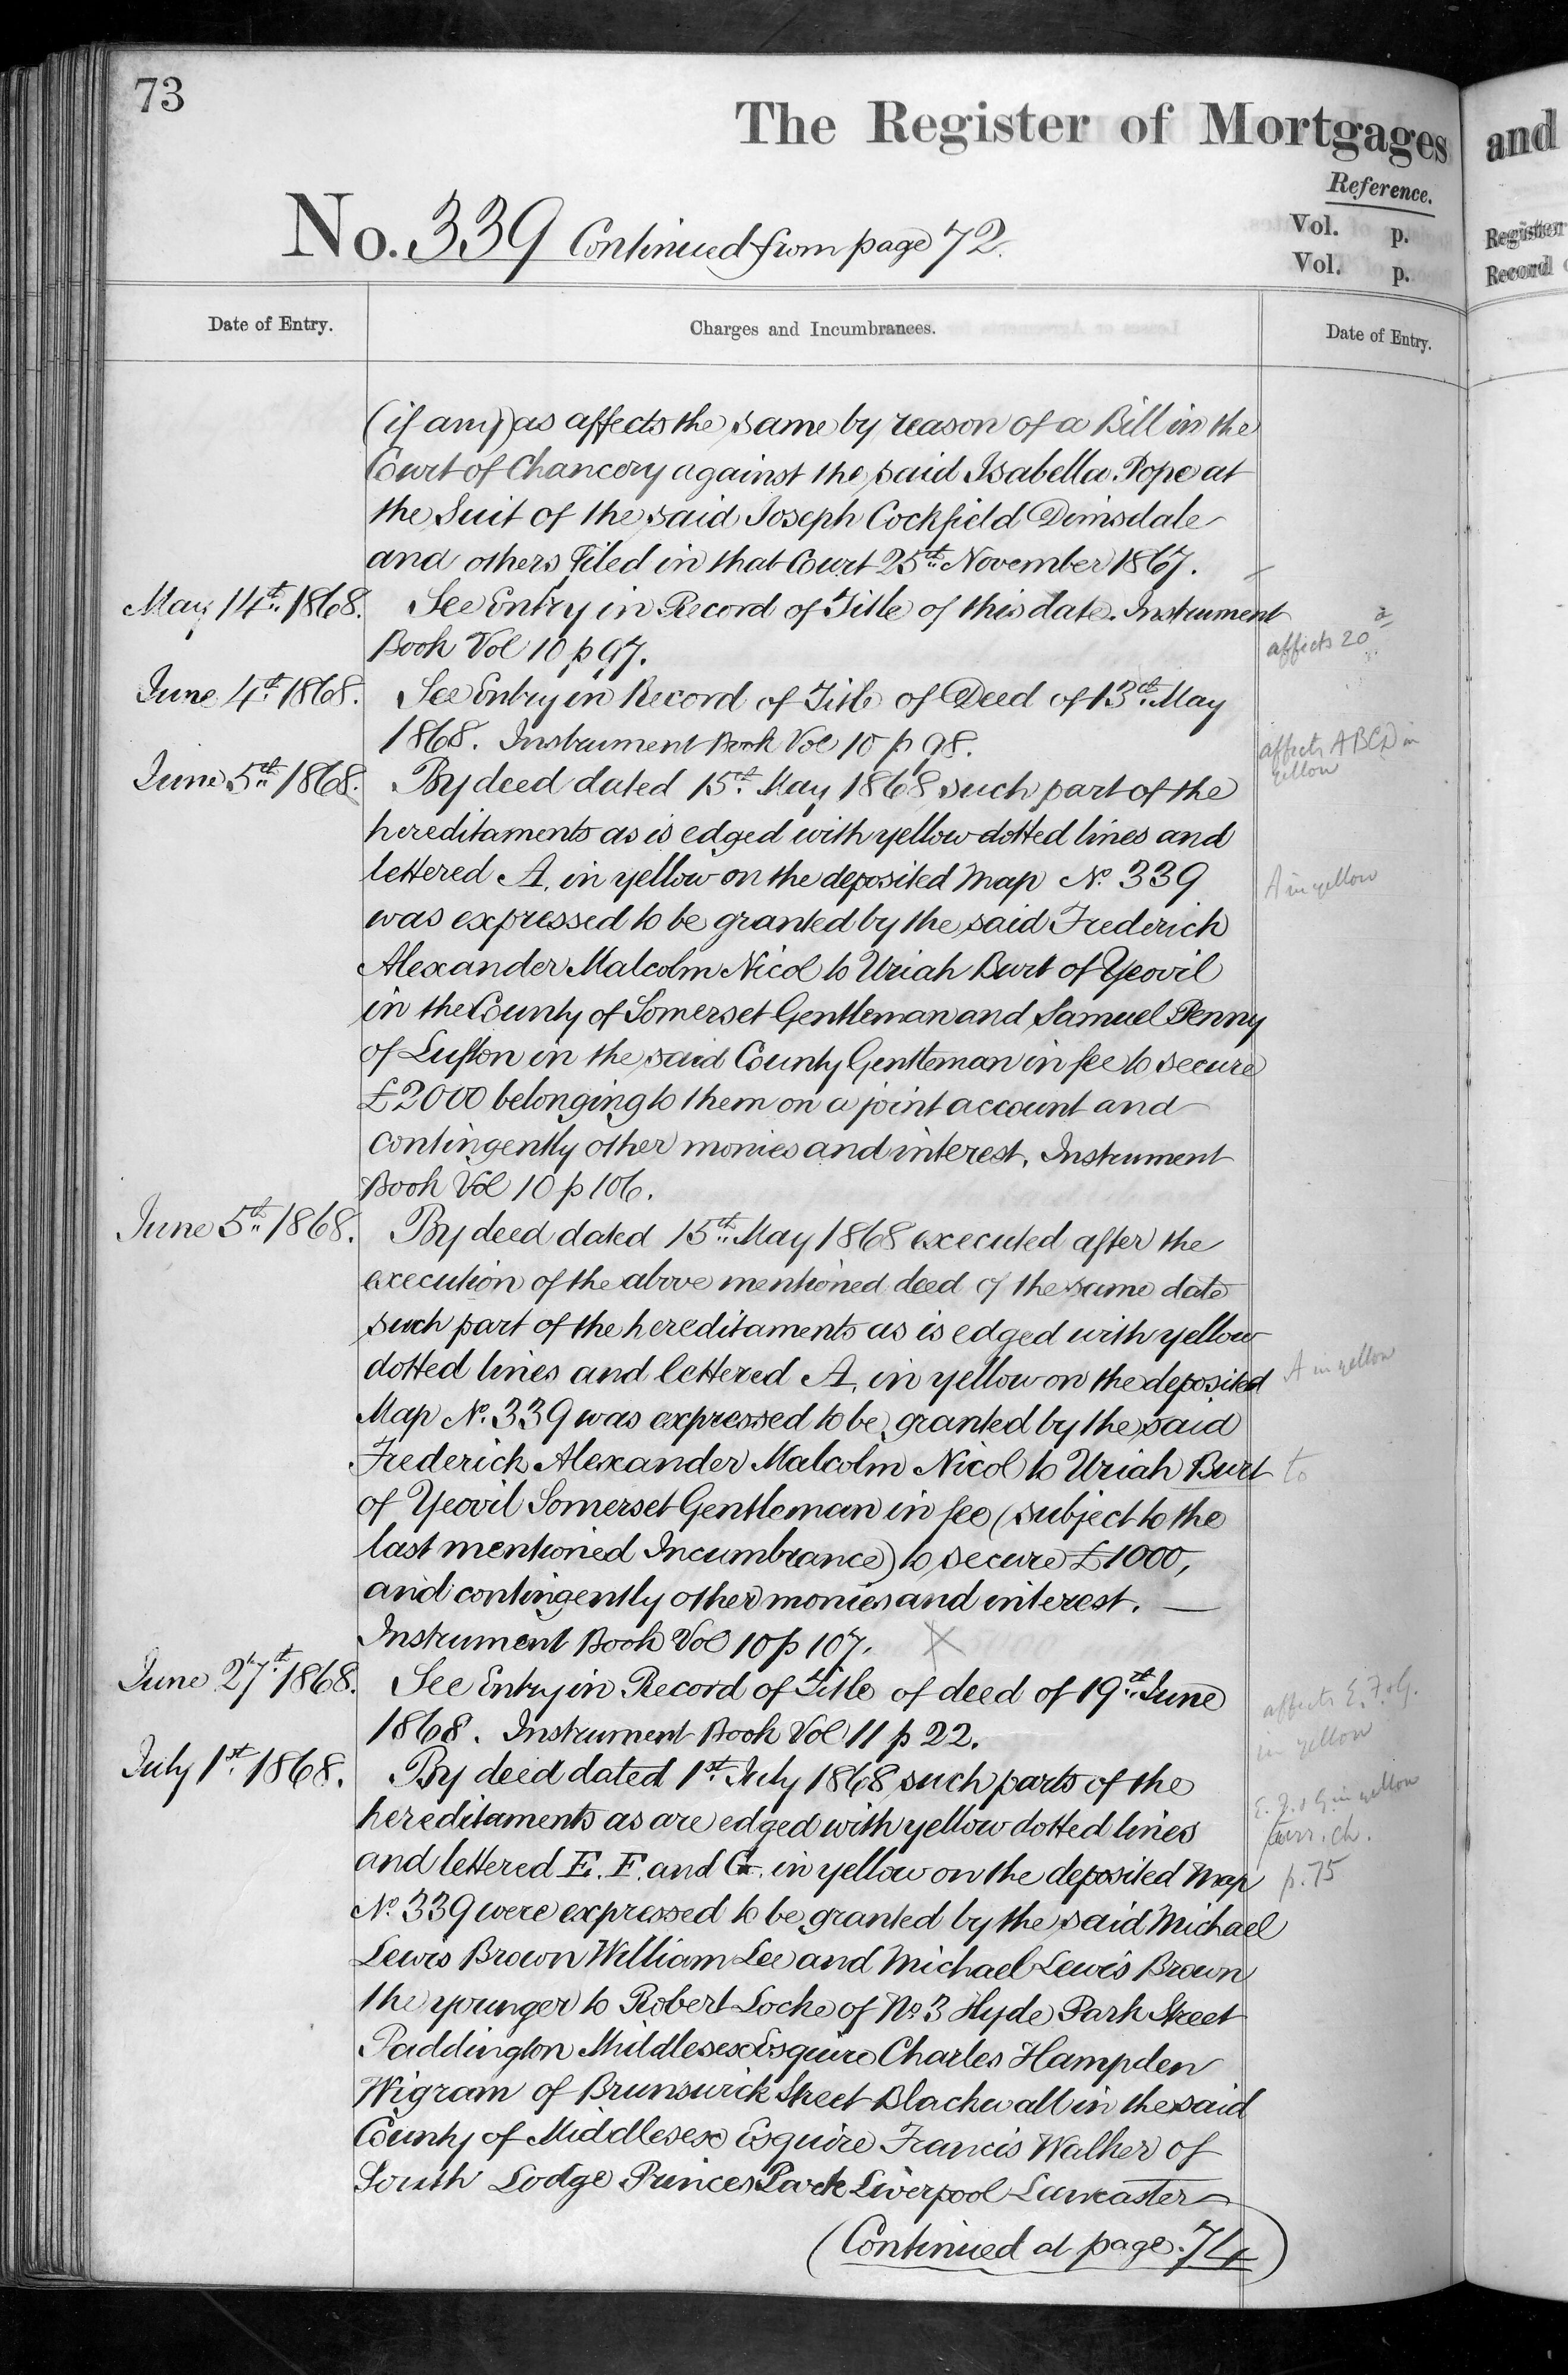 73
The Register of Mortgages
and
Reference.
No. 339 Continued from page 72.
Vol. p.
Vol. p.
Register
Record
Date of Entry.
Charges and Incumbrances.
Date of Entry.
(if any) as affects the same by reason of a Bill in the
Court of Chancery against the said Isabella Pope at
the Suit of the said Joseph Cockfield Dimsdale
and others Filed in that Court 25th November 1867.
May 14th 1868. See Entry in Record of Title of this date. Instrument
Book Vol 10 p 97.
affects 20 a
June 4th 1868. See Entry in Record of Title of Deed of 13th May
1868. Instrument Book Vol 10 p 98.
affects ABCD in
yellow
June 5th 1868. By deed dated 15th May 1868 such part of the
hereditaments as is edged with yellow dotted lines and
lettered A. in yellow on the deposited Map No. 339
A in yellow
was expressed to be granted by the said Frederick
Alexander Malcolm Nicol to Uriah Burt of Yeovil
in the County of Somerset Gentleman and Samuel Penny
of Lufton in the said County Gentleman in fee to secure
£2000 belonging to them on a joint account and
contingently other monies and interest. Instrument
Book Vol 10 p 106.
June 5th 1868. By deed dated 15th May 1868 executed after the
execution of the above mentioned deed of the same date
such part of the hereditaments as is edged with yellow
dotted lines and lettered A. in yellow on the deposited
A in yellow
Map No. 339 was expressed to be granted by the said
Frederick Alexander Malcolm Nicol to Uriah Burt
to
of Yeovil Somerset Gentleman in fee (subject to the
last mentioned Incumbrance) to secure £1000,
and contingently other monies and interest. —
Instrument Book Vol 10 p 107. X
June 27th 1868. See Entry in Record of Title of deed of 19th June
1868. Instrument Book Vol 11 p 22.
affects E. F. & G.
in yellow
July 1st 1868. By deed dated 1st July 1868 such parts of the
hereditaments as are edged with yellow dotted lines
E. F. & G in yellow
and lettered E. F. and G. in yellow on the deposited Map
ch.
p. 75
No. 339 were expressed to be granted by the said Michael
Lewis Brown William Lee and Michael Lewis Brown
the younger to Robert Locke of No. 3 Hyde Park Street
Paddington Middlesex Esquire Charles Hampden
Wigram of Brunswick Street Blackwall in the said
County of Middlesex Esquire Francis Walker of
South Lodge Princes Park Liverpool Lancaster
(Continued at page. 74)